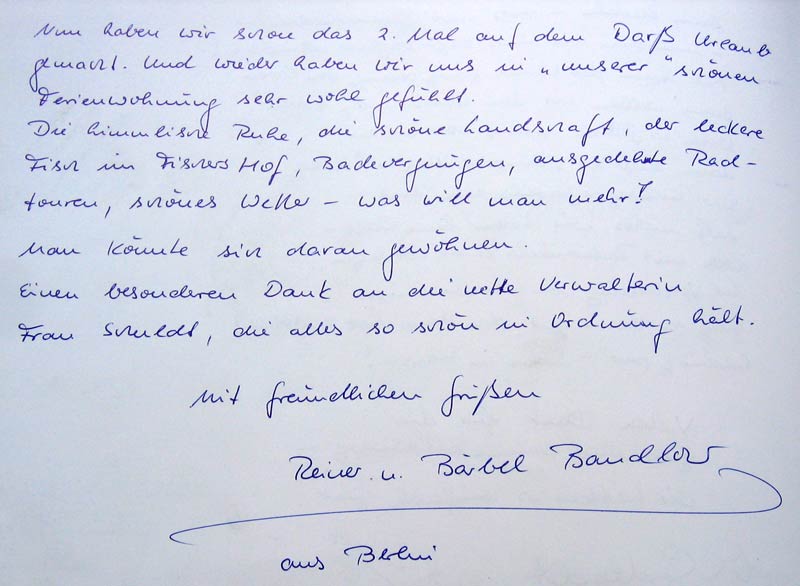 Nun haben wir schon das 2. Mal auf dem Darß Urlaub
gemacht. Und wieder haben wir uns in „unserer" schönen
Ferienwohnung sehr wohl gefühlt.
Die himmlische Ruhe, die schöne Landschaft, der leckere
Fisch im Fischers Hof, Badevergnügen, ausgedehnte Rad-
touren, schönes Wetter – was will man mehr?
Man könnte sich daran gewöhnen.
Einen besonderen Dank an die nette Verwalterin
Frau Schuldt, die alles so schön in Ordnung hält.
Mit freundlichen Grüßen
Reiner u. Bärbel Bandlow
aus Berlin